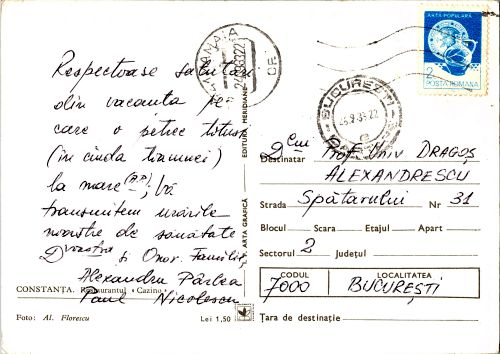 Respectoase salutări
din vacanța pe
care o petrec totuși
(în ciuda
la mare; vă
transmitem urările
noastre de sănătate
Dvoastră și Onor. Familii,
Alexandru Pârlea
Paul Nicolescu
CONSTANȚA. Restaurantul «Cazino»
Foto: Al. Florescu
Lei 1,50
ARTA GRAFICĂ
EDITURA MERIDIANE
CONSTANȚA
ARTA POPULARĂ
2
POSTA ROMANA
BUCUREȘTI
Destinatar Dlui Prof. Univ DRAGOȘ
ALEXANDRESCU
Strada Spătarului Nr 31
Blocul Scara Etajul Apart
Sectorul 2 Județul
CODUL LOCALITATEA
7000 BUCUREȘTI
Țara de destinație